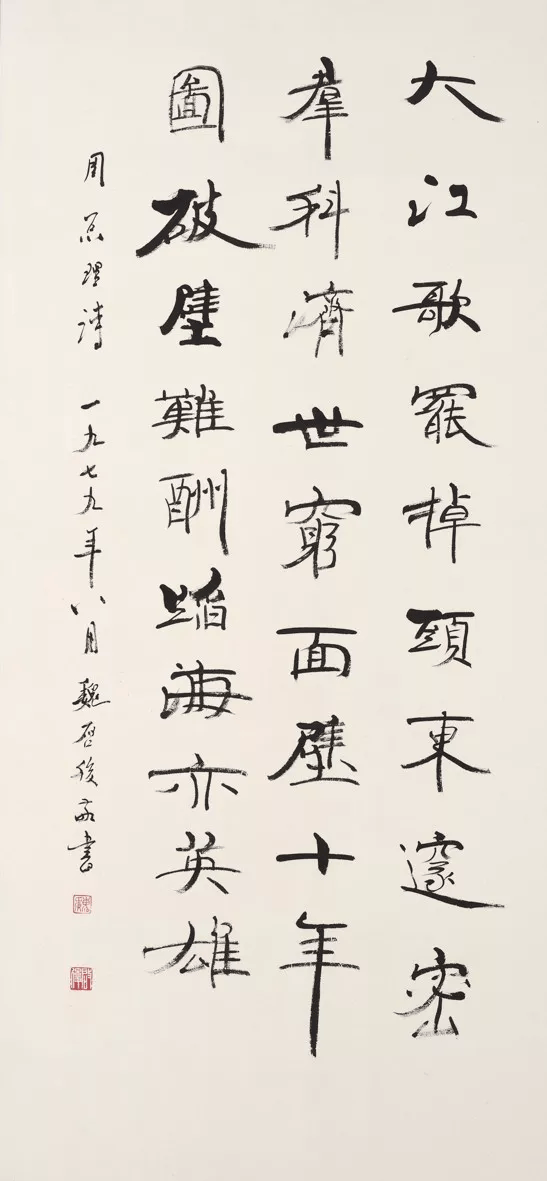 大江歌罷掉頭東邃密
羣科濟世窮面壁十年
圖破壁難酬蹈海亦英雄
周总理詩 一九七九年八月 魏启後敬書